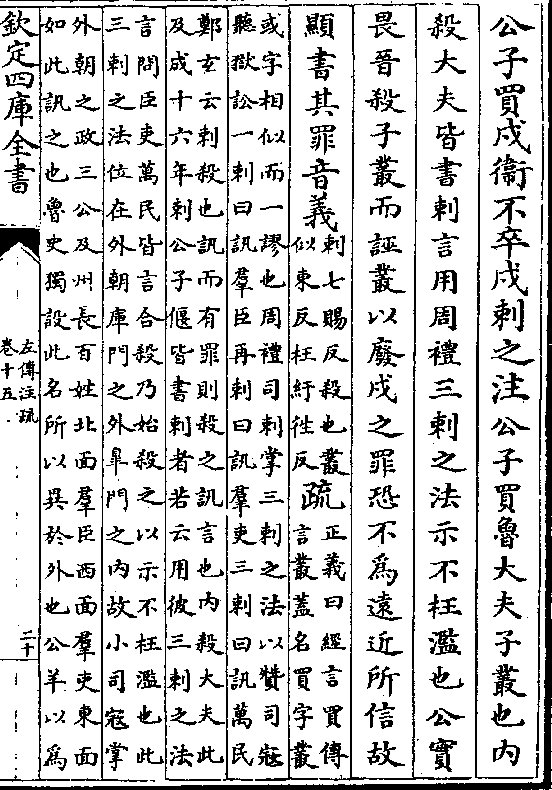 公子買戍衞不卒戍刺之注公子買魯大夫子叢也内
殺大夫皆書刺言用周禮三刺之法示不枉濫也公實
畏晉殺子叢而誣叢以廢戍之罪恐不為逺近所信故
顯書其罪音義
刺七賜反殺也叢
似東反枉紆徃反
疏
正義曰經言買傳
言叢蓋名買字叢
或字相似而一謬也周禮司刺掌三刺之法以贊司寇
聽獄訟一刺曰訊羣臣再刺曰訊羣吏三刺曰訊萬民
鄭玄云刺殺也訊而有罪則殺之訊言也内殺大夫此
及成十六年刺公子偃皆書刺者若云用彼三刺之法
言問臣吏萬民皆言合殺乃始殺之以示不枉濫也此
三刺之法位在外朝庫門之外臯門之内故小司寇掌
外朝之政三公及州長百姓北面羣臣西面羣吏東面
如此訊之也魯史獨設此名所以異於外也公羊以為
欽定四庫全書
左傳注疏
卷十五
二十